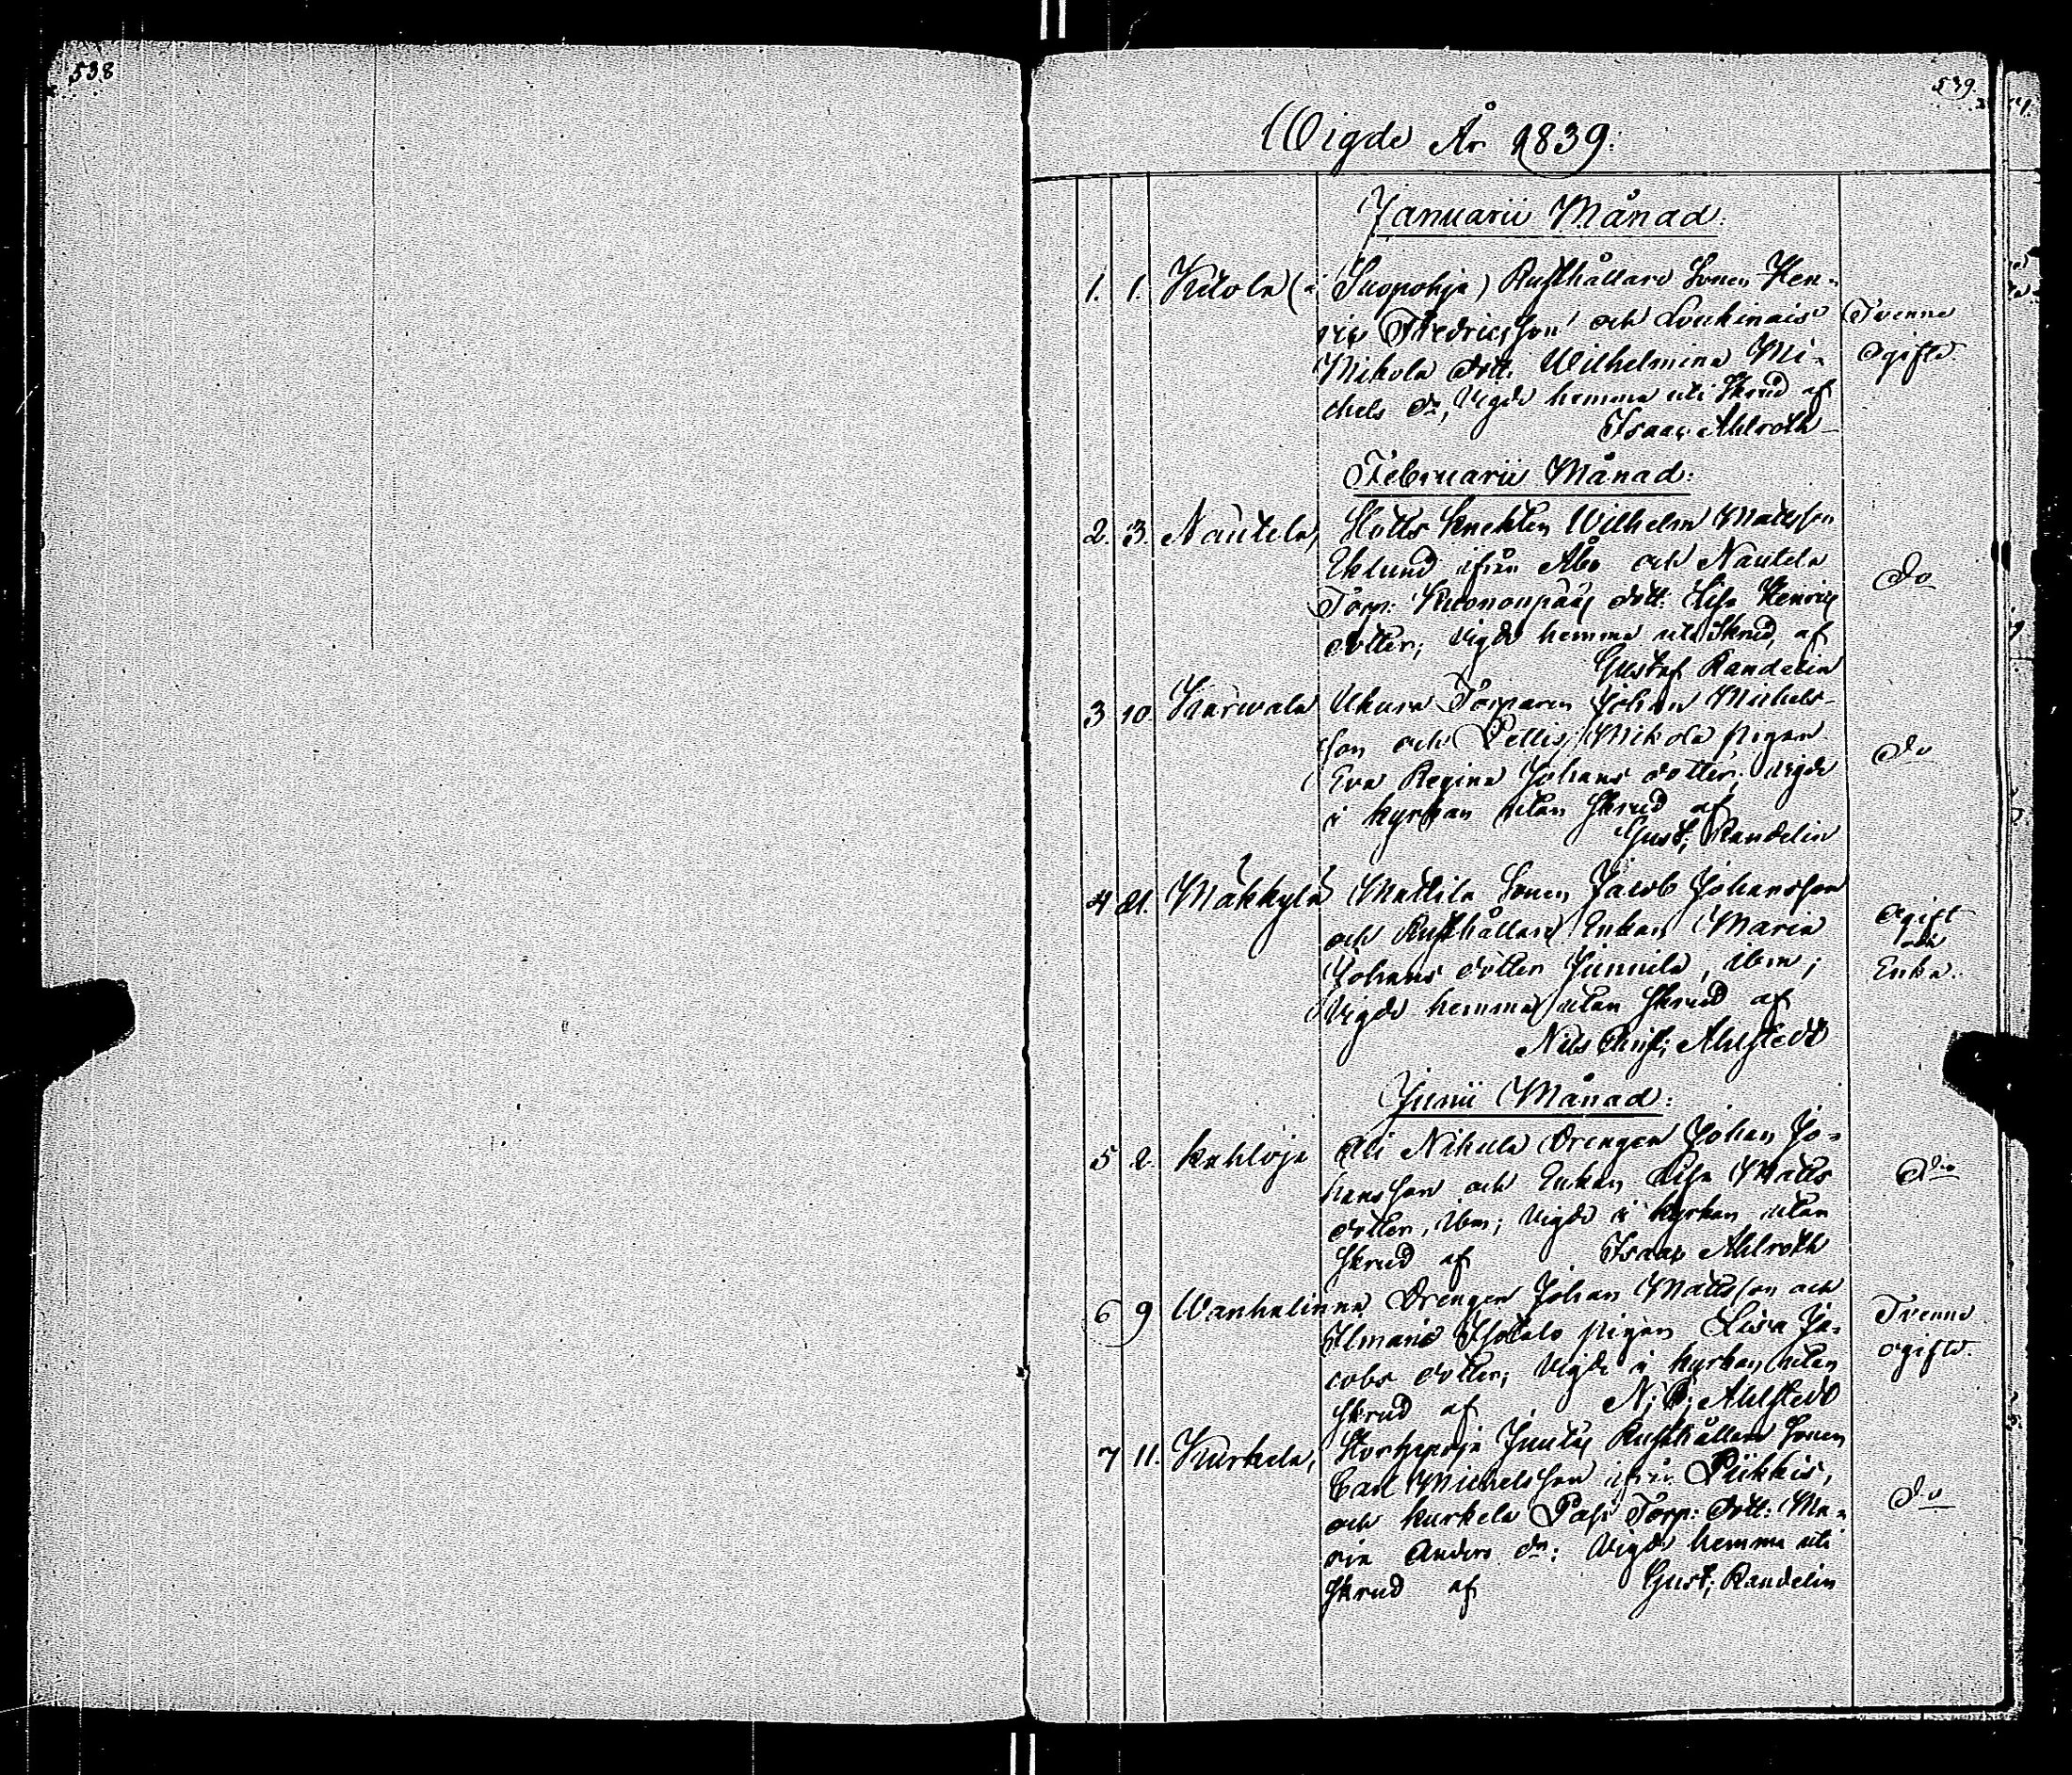 538
539.
Wigde År 1839.
Januarii Månad.
1. 1. Kitola (i Suopohja) Rusthållare Sonen Hen-
ric Fredricsson och Loukinais Tvenne
Mikola dott. Wilhelmina Mi- ogifte
chels dr, Vigde hemma uti Skrud af
Isaac Ahlroth
Februarii Månad:
2. 3. Nautela, Slotts Knekten Wilhelm Matsson
Eklund ifrån Åbo och Nautela do
Torp: dott: Lisa Henrics
dotter; vigde hemma uti Skrud, af
Gustaf Randelin
3 10. Karwala Ukura Torparen Johan Michels-
son och Pellis Mikola pigan do
Eva Regina Johans dotter; vigde
i kyrkan utan Skrud af
Gust; Randelin
4 21. Mäkkylä Mattila Sonen Jacob Johansson
och Rusthållare Enkan Maria ogift och
Johans dotter Junnila, ibm; Enka.
Vigde hemma utan Skrud af
Nils Christ; Ahlstedt
Junii Månad:
5 2. Kahloja Ali Nikula Drengen Johan Jo-
hansson och Enkan Lisa Matts do
dotter, ibm; Vigde i Kyrkan utan
Skrud af Isaac Ahlroth
6 9 Wanhalinna Drengen Johan Mattsson och Tvenne
Ilmaris Isotalo pigan Lisa Ja- ogifte.
cobs dotter; Vigde i kyrkan utan
Skrud af N; C; Ahlstedt
7 11. Kurkela, Rusthållare Sonen
Carl Michelsson ifrån Piikkis,
och Kurkela Pasi Torp: dott: Ma- do
ria Anders dr: Vigde hemma uti
Skrud af Gust; Randelin